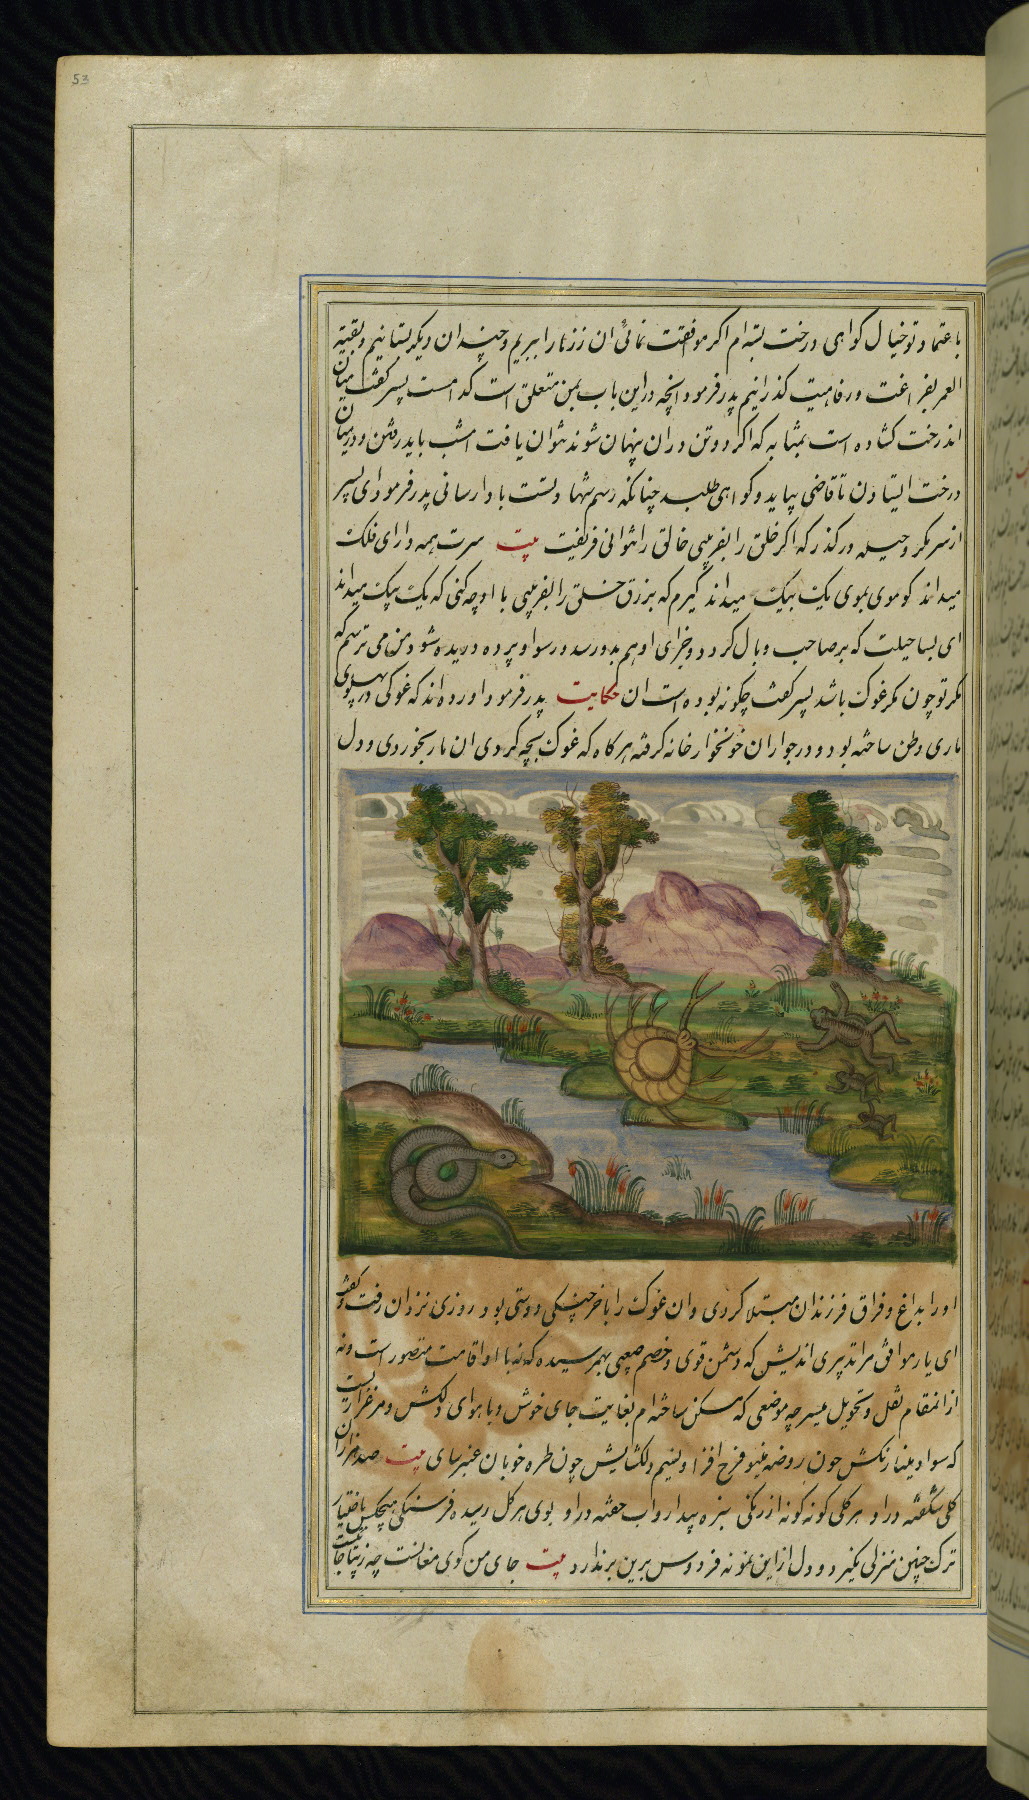 53
باعتماد تو خیال کواهی درخت بسته‌ام اکر موافقت نمائی ان زر نمارا ببریم و چندان دیکر بستانیم و بقیته
العمر بفراغت و رفاهیت کذرانیم پدر فرمود انچه در این باب بمن متعلق است کدامست پسر کفت میان
اندرخت کشاده است بمثابه که اکر دو تن در ان پنهان شوند نتوان یافت امشب باید رفتن و در میان ان
درخت ایستادن تا قاضی بیاید و کواهی طلبد چنانکه رسم شهادتست با دا رسانی پدر فرمود ای پسر
از سر مکر و حیله در کذر که اکر خلق را بفریبی خالق را نتوانی فریفت بیت سرت همه دارای فلک
میداند کو موی بموی یک بیک میداند کیرم که بزرق خلق را بفریبی با او چه کنی که یک بیک میداند
ای بسا حیلت که بر صاحب وبال کردد و جزای او هم بدو رسد و رسوا و پرده دریده شود و من می ترسم که
مکر تو چون مکر غوک باشد پسر کفت چکونه بوده است ان حکایت پدر فرمود اورده اند که غوکی در پهلوی
ماری وطن ساخته بود و در جوار ان خونخوار خانه کرفته هر کاه که غوک بچه کردی ان مار بخوردی و دل
او را بداغ و فراق فرزندان مبتلا کردی و ان غوک را با خرچنکی دوستی بود روزی نزد ان رفت و کفت
ای یار موافق مرا تدبیری اندیش که دشمن قوی و خصم صعبی بهم رسیده که نه با او اقامت متصور است و نه
از انمقام نقل و تحویل میسر چه موضعی که مسکن ساخته‌ام بغایت جای خوش و با هوای دلکش و مرغزاریست
که سواد مینا رنکش چون روضه مینو فرح افزا و نسیم دلکشایش چون طره خوبان عنبر سای بیت صد هزاران
کلی شکفته در او هر کلی کونه کونه از رنکی سبزه بیدار و اب خفته در او بوی هر کل رسیده فرسنکی هیچکس باختیار
ترک چنین منزلی نکیرد و دل از این نمونه فردوس برین برندارد بیت جای من کوی مغانست چه زیبا جائیست